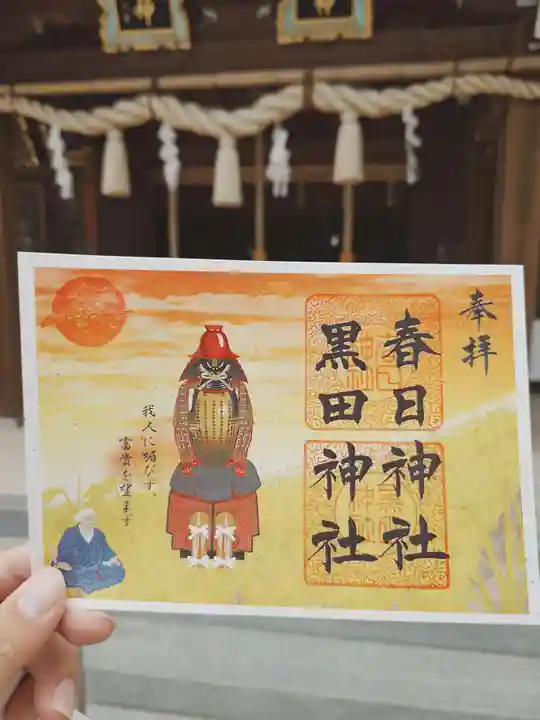 神
神
奉拝
春日神社
黒田神社
我人に媚びず、
富貴を望まず